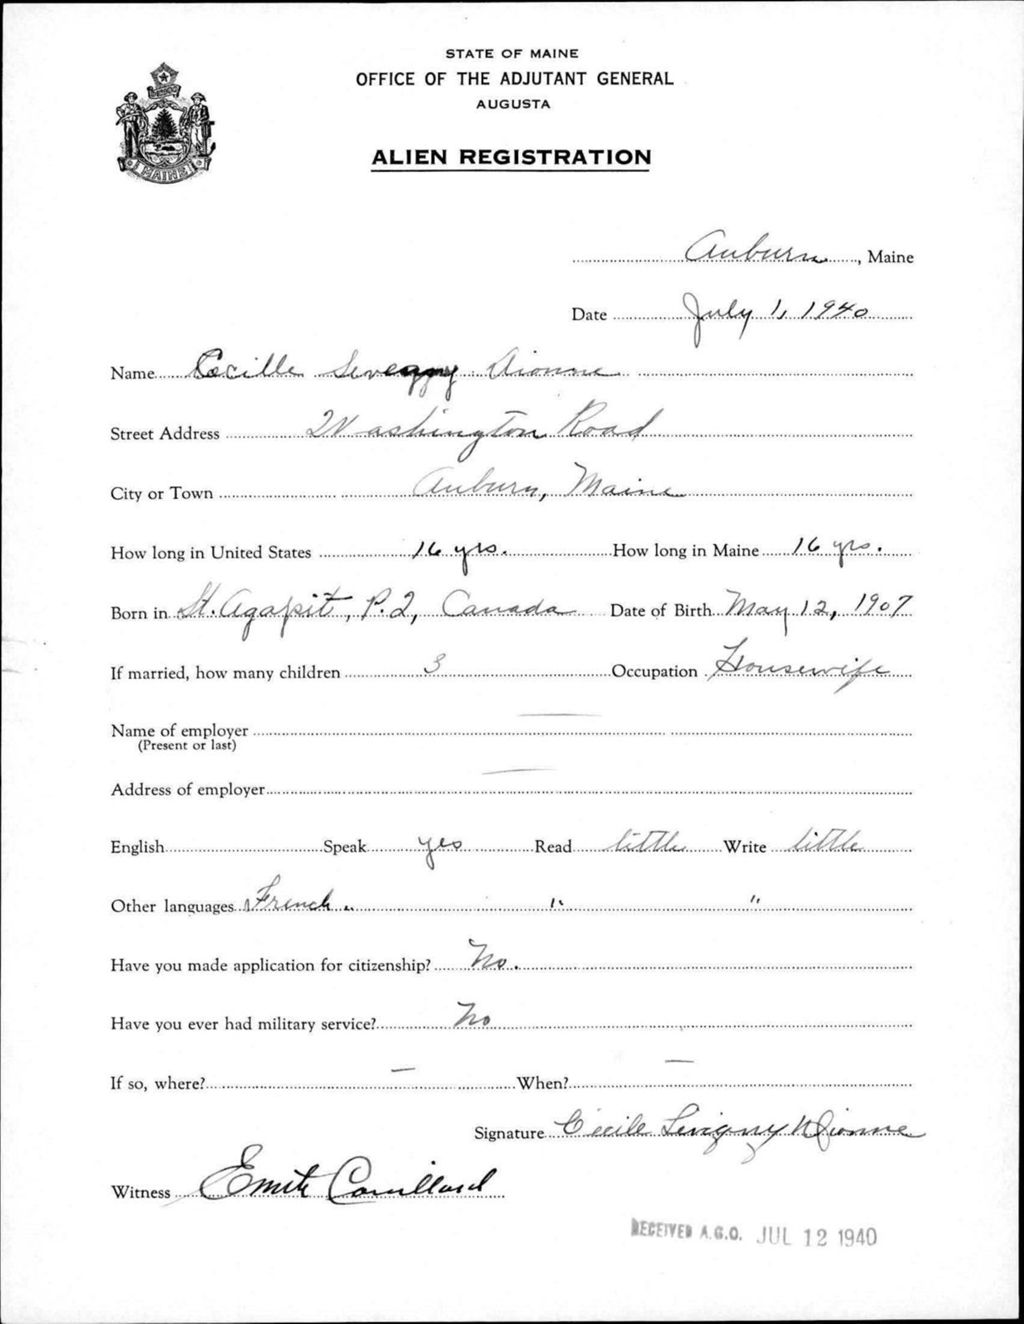 STATE OF MAINE
OFFICE OF THE ADJUTANT GENERAL
AUGUSTA
ALIEN REGISTRATION
MAINE
Auburn, Maine
Date July 1, 1940
Name Cecille Dionne
Street Address Washington Road
City or Town Auburn, Maine
How long in United States 16 yrs. How long in Maine 16 yrs.
Born in St. Agapit, P.Q, Canada Date of Birth May 12, 1907
If married, how many children 3 Occupation Housewife
Name of employer —
(Present or last)
Address of employer —
English Speak yes Read little Write little
Other languages French " " "
Have you made application for citizenship? No.
Have you ever had military service? No
If so, where? — When? —
Signature Cecile Levigny Dionne
Witness
RECEIVED A.G.O. JUL 12 1940